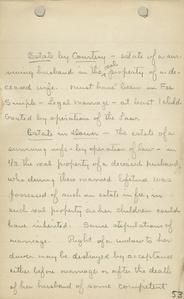 Estate by Courtesy - estate of a sur-
viving husband in the real property of a de-
ceased wife. must have been in Fee
Simple - Legal marriage - at least 1 child
Created by operation of the Law.
Estate in Dower - the estate of a
surviving wife - by operation of law - in
1/3 the real property of a deceased husband,
who during their married lifetime was
possessed of such an estate in fee, in
such real property as her children could
have inherited. Same stipulations of
marriage. Right of a widow to her
dower may be destroyed by acceptance
either before marriage or after the death
of her husband of some competent
53